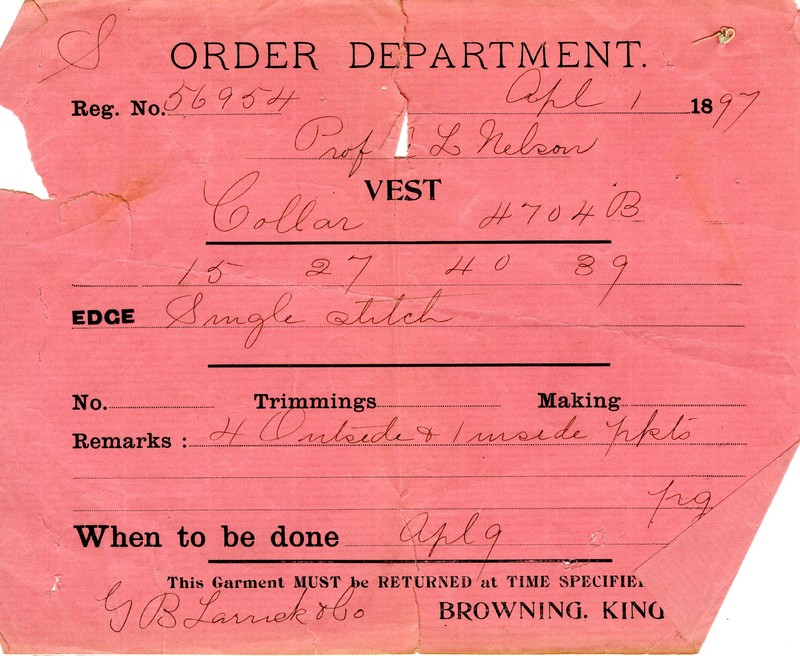 S
ORDER DEPARTMENT.
Reg. No. 56954 Apl 1 1897
Prof L Nelson
VEST
Collar 4704 B
15 27 40 39
EDGE Single stitch
No. Trimmings Making
Remarks : 4 Outside & 1 inside pkts
pg
When to be done Apl 9
This Garment MUST be RETURNED at TIME SPECIFIED
G B Larrick & Co BROWNING. KING